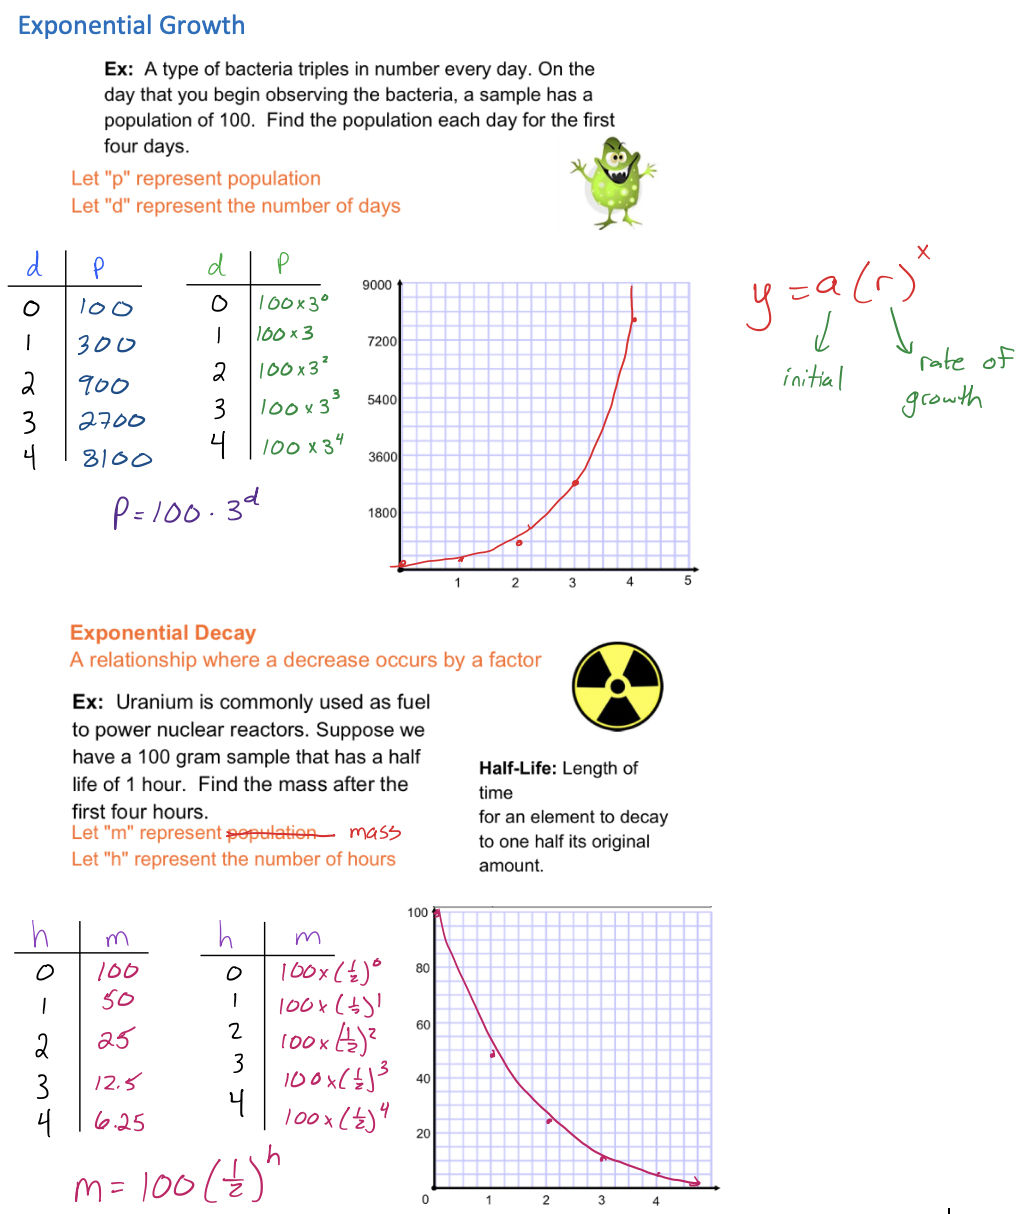 Exponential Growth
Ex: A type of bacteria triples in number every day. On the
day that you begin observing the bacteria, a sample has a
population of 100. Find the population each day for the first
four days.
Let "p" represent population
Let "d" represent the number of days
d P
0 100
1 300
2 900
3 2700
4 8100
P = 100 · 3^d
d P
0 100 x 3^0
1 100 x 3
2 100 x 3^2
3 100 x 3^3
4 100 x 3^4
9000
7200
5400
3600
1800
1 2 3 4 5
y = a (r)^x
initial
rate of
growth
Exponential Decay
A relationship where a decrease occurs by a factor
Ex: Uranium is commonly used as fuel
to power nuclear reactors. Suppose we
have a 100 gram sample that has a half
life of 1 hour. Find the mass after the
first four hours.
Let "m" represent population mass
Let "h" represent the number of hours
Half-Life: Length of
time
for an element to decay
to one half its original
amount.
h m
0 100
1 50
2 25
3 12.5
4 6.25
m = 100 (1/2)^h
h m
0 100 x (1/2)^0
1 100 x (1/2)^1
2 100 x (1/2)^2
3 100 x (1/2)^3
4 100 x (1/2)^4
100
80
60
40
20
0 1 2 3 4